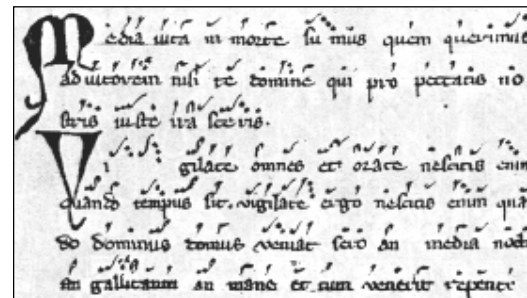 Media vita in morte su mus quem querimus
ad iutorem nisi te domine qui pro peccatis no
stris iuste irasceris.
Vi gilate omnes et orate nescitis enim
quando tempus sit. vigilate ergo nescitis enim qua
do dominus domus veniat sero an media noct
an gallicantu an mane et cum venerit repente